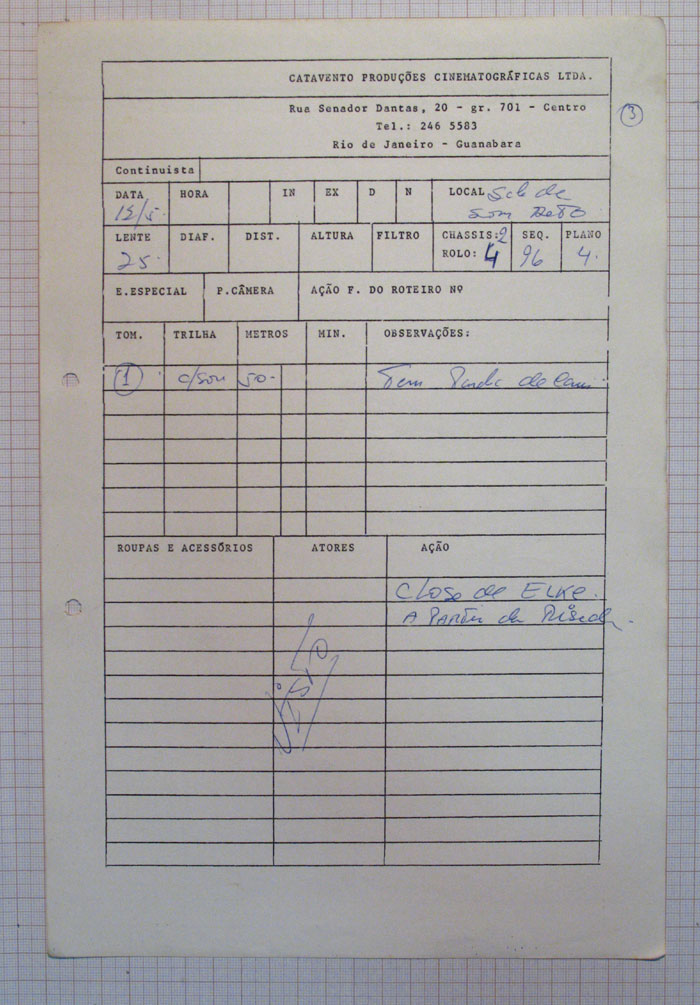 CATAVENTO PRODUÇÕES CINEMATOGRÁFICAS LTDA.
Rua Senador Dantas, 20 - gr. 701 - Centro
3
Tel.: 246 5583
Rio de Janeiro - Guanabara
Continuista
DATA HORA IN EX D N LOCAL
de
som
LENTE DIAF. DIST. ALTURA FILTRO CHASSIS: 2 SEQ. PLANO
25. ROLO: 4 96 4.
E.ESPECIAL P.CÂMERA AÇÃO F. DO ROTEIRO Nº
TOM. TRILHA METROS MIN. OBSERVAÇÕES:
1 c/som 50. Tem de
ROUPAS E ACESSÓRIOS ATORES AÇÃO
Close de ELKE.
A PARTIR da